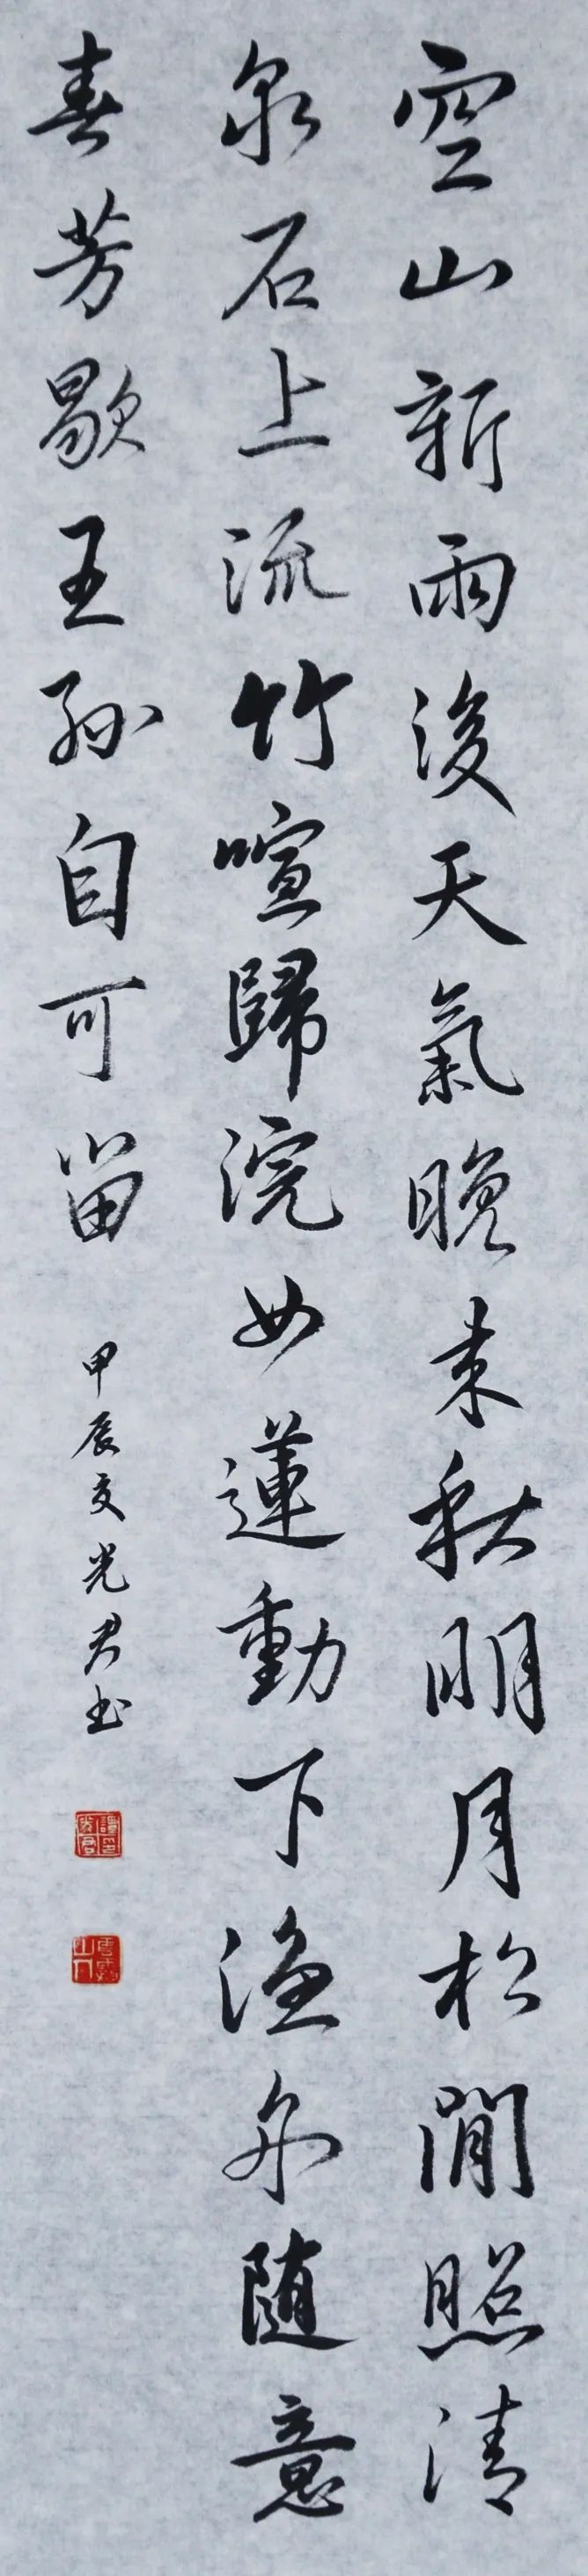 空山新雨後天氣晚来秋明月松間照清
泉石上流竹喧歸浣女蓮動下漁舟随意
春芳歇王孫自可留
甲辰文光君書